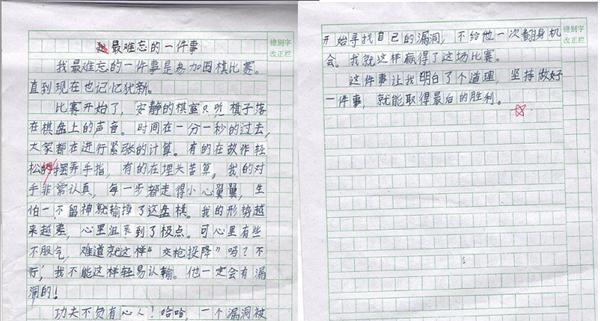 最难忘的一件事
错别字
改正栏
我最难忘的一件事是参加围棋比赛。
直到现在也记忆犹新。
比赛开始了，安静的棋室只听棋子落
在棋盘上的声音。时间在一分一秒的过去，
大家都在进行紧张的计算。有的在故作轻
松的摆弄手指，有的在埋头苦算。我的对
手非常认真，每一步都走得小心翼翼，生
怕一不留神就输掉了这盘棋。我的形势越
来越差，心里沮丧到了极点。可心里有些
不服气，难道就这样“交枪投降”吗？不
行，我不能这样轻易认输。他一定会有漏
洞的！
功夫不负有心人！哈哈，一个漏洞被
开始寻找自己的漏洞，不给他一次翻身机
会。我就这样赢得了这场比赛。
这件事让我明白了个道理，坚持做好
一件事，就能取得最后的胜利。
错别字
改正栏